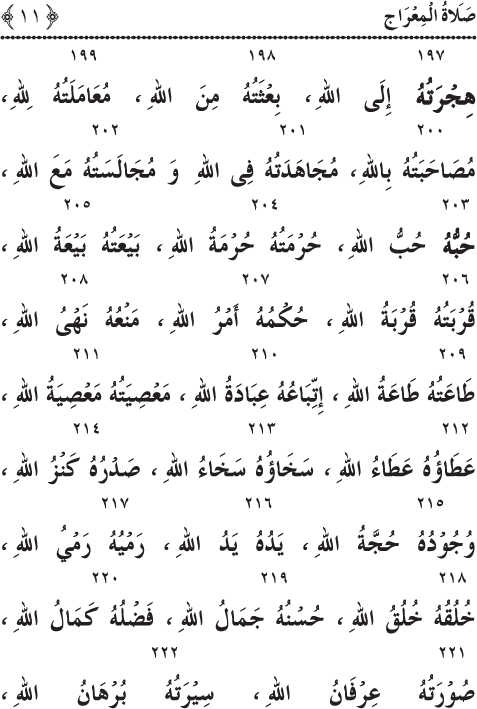 صَلَاةُ الْمِعْرَاج ﴿١١﴾
١٩٧ ١٩٨ ١٩٩
هِجْرَتُهُ إِلَى اللهِ، بِعْثَتُهُ مِنَ اللهِ، مُعَامَلَتُهُ لِلهِ،
٢٠٠ ٢٠١ ٢٠٢
مُصَاحَبَتُهُ بِاللهِ، مُجَاهَدَتُهُ فِى اللهِ وَ مُجَالَسَتُهُ مَعَ اللهِ،
٢٠٣ ٢٠٤ ٢٠٥
حُبُّهُ حُبُّ اللهِ، حُرْمَتُهُ حُرْمَةُ اللهِ، بَيْعَتُهُ بَيْعَةُ اللهِ،
٢٠٦ ٢٠٧ ٢٠٨
قُرْبَتُهُ قُرْبَةُ اللهِ، حُكْمُهُ أَمْرُ اللهِ، مَنْعُهُ نَهْىُ اللهِ،
٢٠٩ ٢١٠ ٢١١
طَاعَتُهُ طَاعَةُ اللهِ، إِتِّبَاعُهُ عِبَادَةُ اللهِ، مَعْصِيَتُهُ مَعْصِيَةُ اللهِ،
٢١٢ ٢١٣ ٢١٤
عَطَاؤُهُ عَطَاءُ اللهِ، سَخَاؤُهُ سَخَاءُ اللهِ، صَدْرُهُ كَنْزُ اللهِ،
٢١٥ ٢١٦ ٢١٧
وُجُوْدُهُ حُجَّةُ اللهِ، يَدُهُ يَدُ اللهِ، رَمْيُهُ رَمْيُ اللهِ،
٢١٨ ٢١٩ ٢٢٠
خُلُقُهُ خُلُقُ اللهِ، حُسْنُهُ جَمَالُ اللهِ، فَضْلُهُ كَمَالُ اللهِ،
٢٢١ ٢٢٢
صُوْرَتُهُ عِرْفَانُ اللهِ، سِيْرَتُهُ بُرْهَانُ اللهِ،